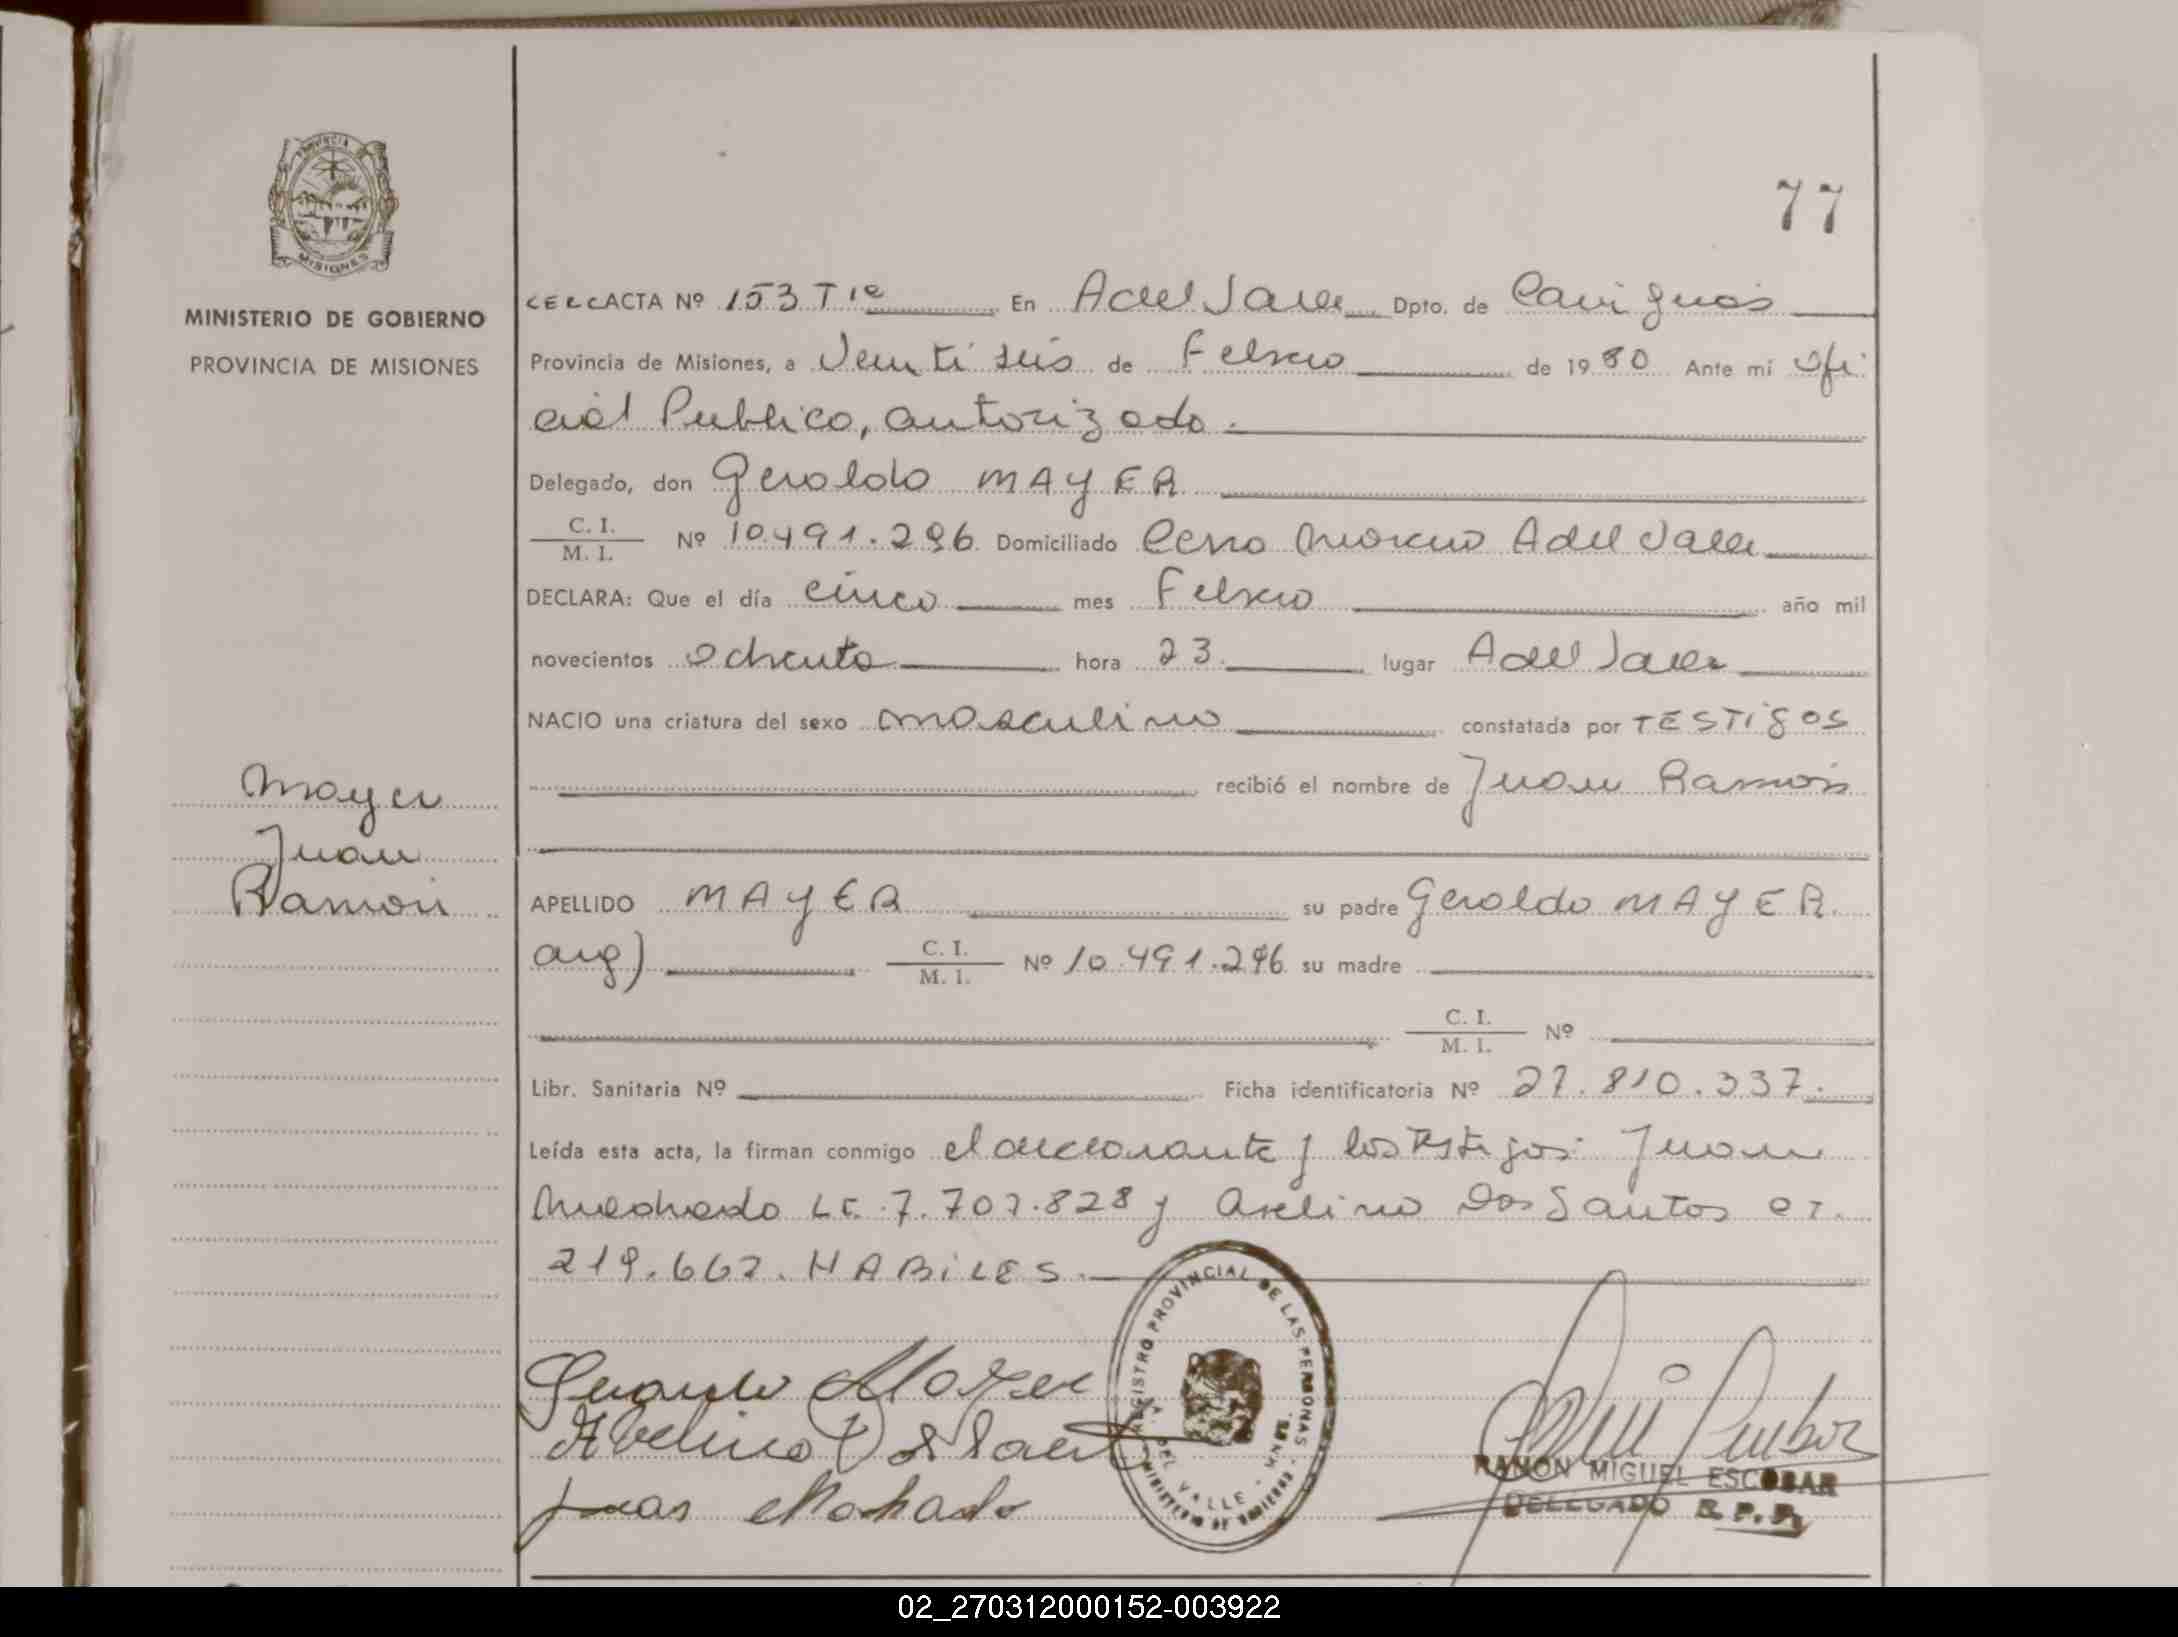 77
PROVINCIA
MISIONES
MINISTERIO DE GOBIERNO
PROVINCIA DE MISIONES
ACTA Nº 153 T 1º En A del Valle Dpto. de Cainguás
Provincia de Misiones, a Veintiseis de Febrero de 1980 Ante mí Ofi
cial Publico, autorizado.
Delegado, don Geraldo MAYER
C. I.
M. I. Nº 10.491.296 Domiciliado Cerro Moreno A del Valle
DECLARA: Que el día cinco mes Febrero año mil
novecientos ochenta hora 23 lugar A del Valle
NACIO una criatura del sexo masculino constatada por TESTigos
recibió el nombre de Juan Ramón
Mayer
Juan
Ramón
APELLIDO MAYER su padre Geraldo MAYER
arg) C. I.
M. I. Nº 10.491.296 su madre
C. I.
M. I. Nº
Libr. Sanitaria Nº Ficha identificatoria Nº 27.810.337.
Leída esta acta, la firman conmigo el declarante y los Testigos: Juan
Machado LE. 7.707.828 y Avelino Dos Santos CI.
219.667. HABiLES.
REGISTRO PROVINCIAL DE LAS PERSONAS
A. DEL VALLE - MNES.
MINISTERIO DE GOBIERNO
Mayer
Avelino
Juan Machado
RAMON MIGUEL ESCOBAR
DELEGADO R.P.P.
02_270312000152-003922